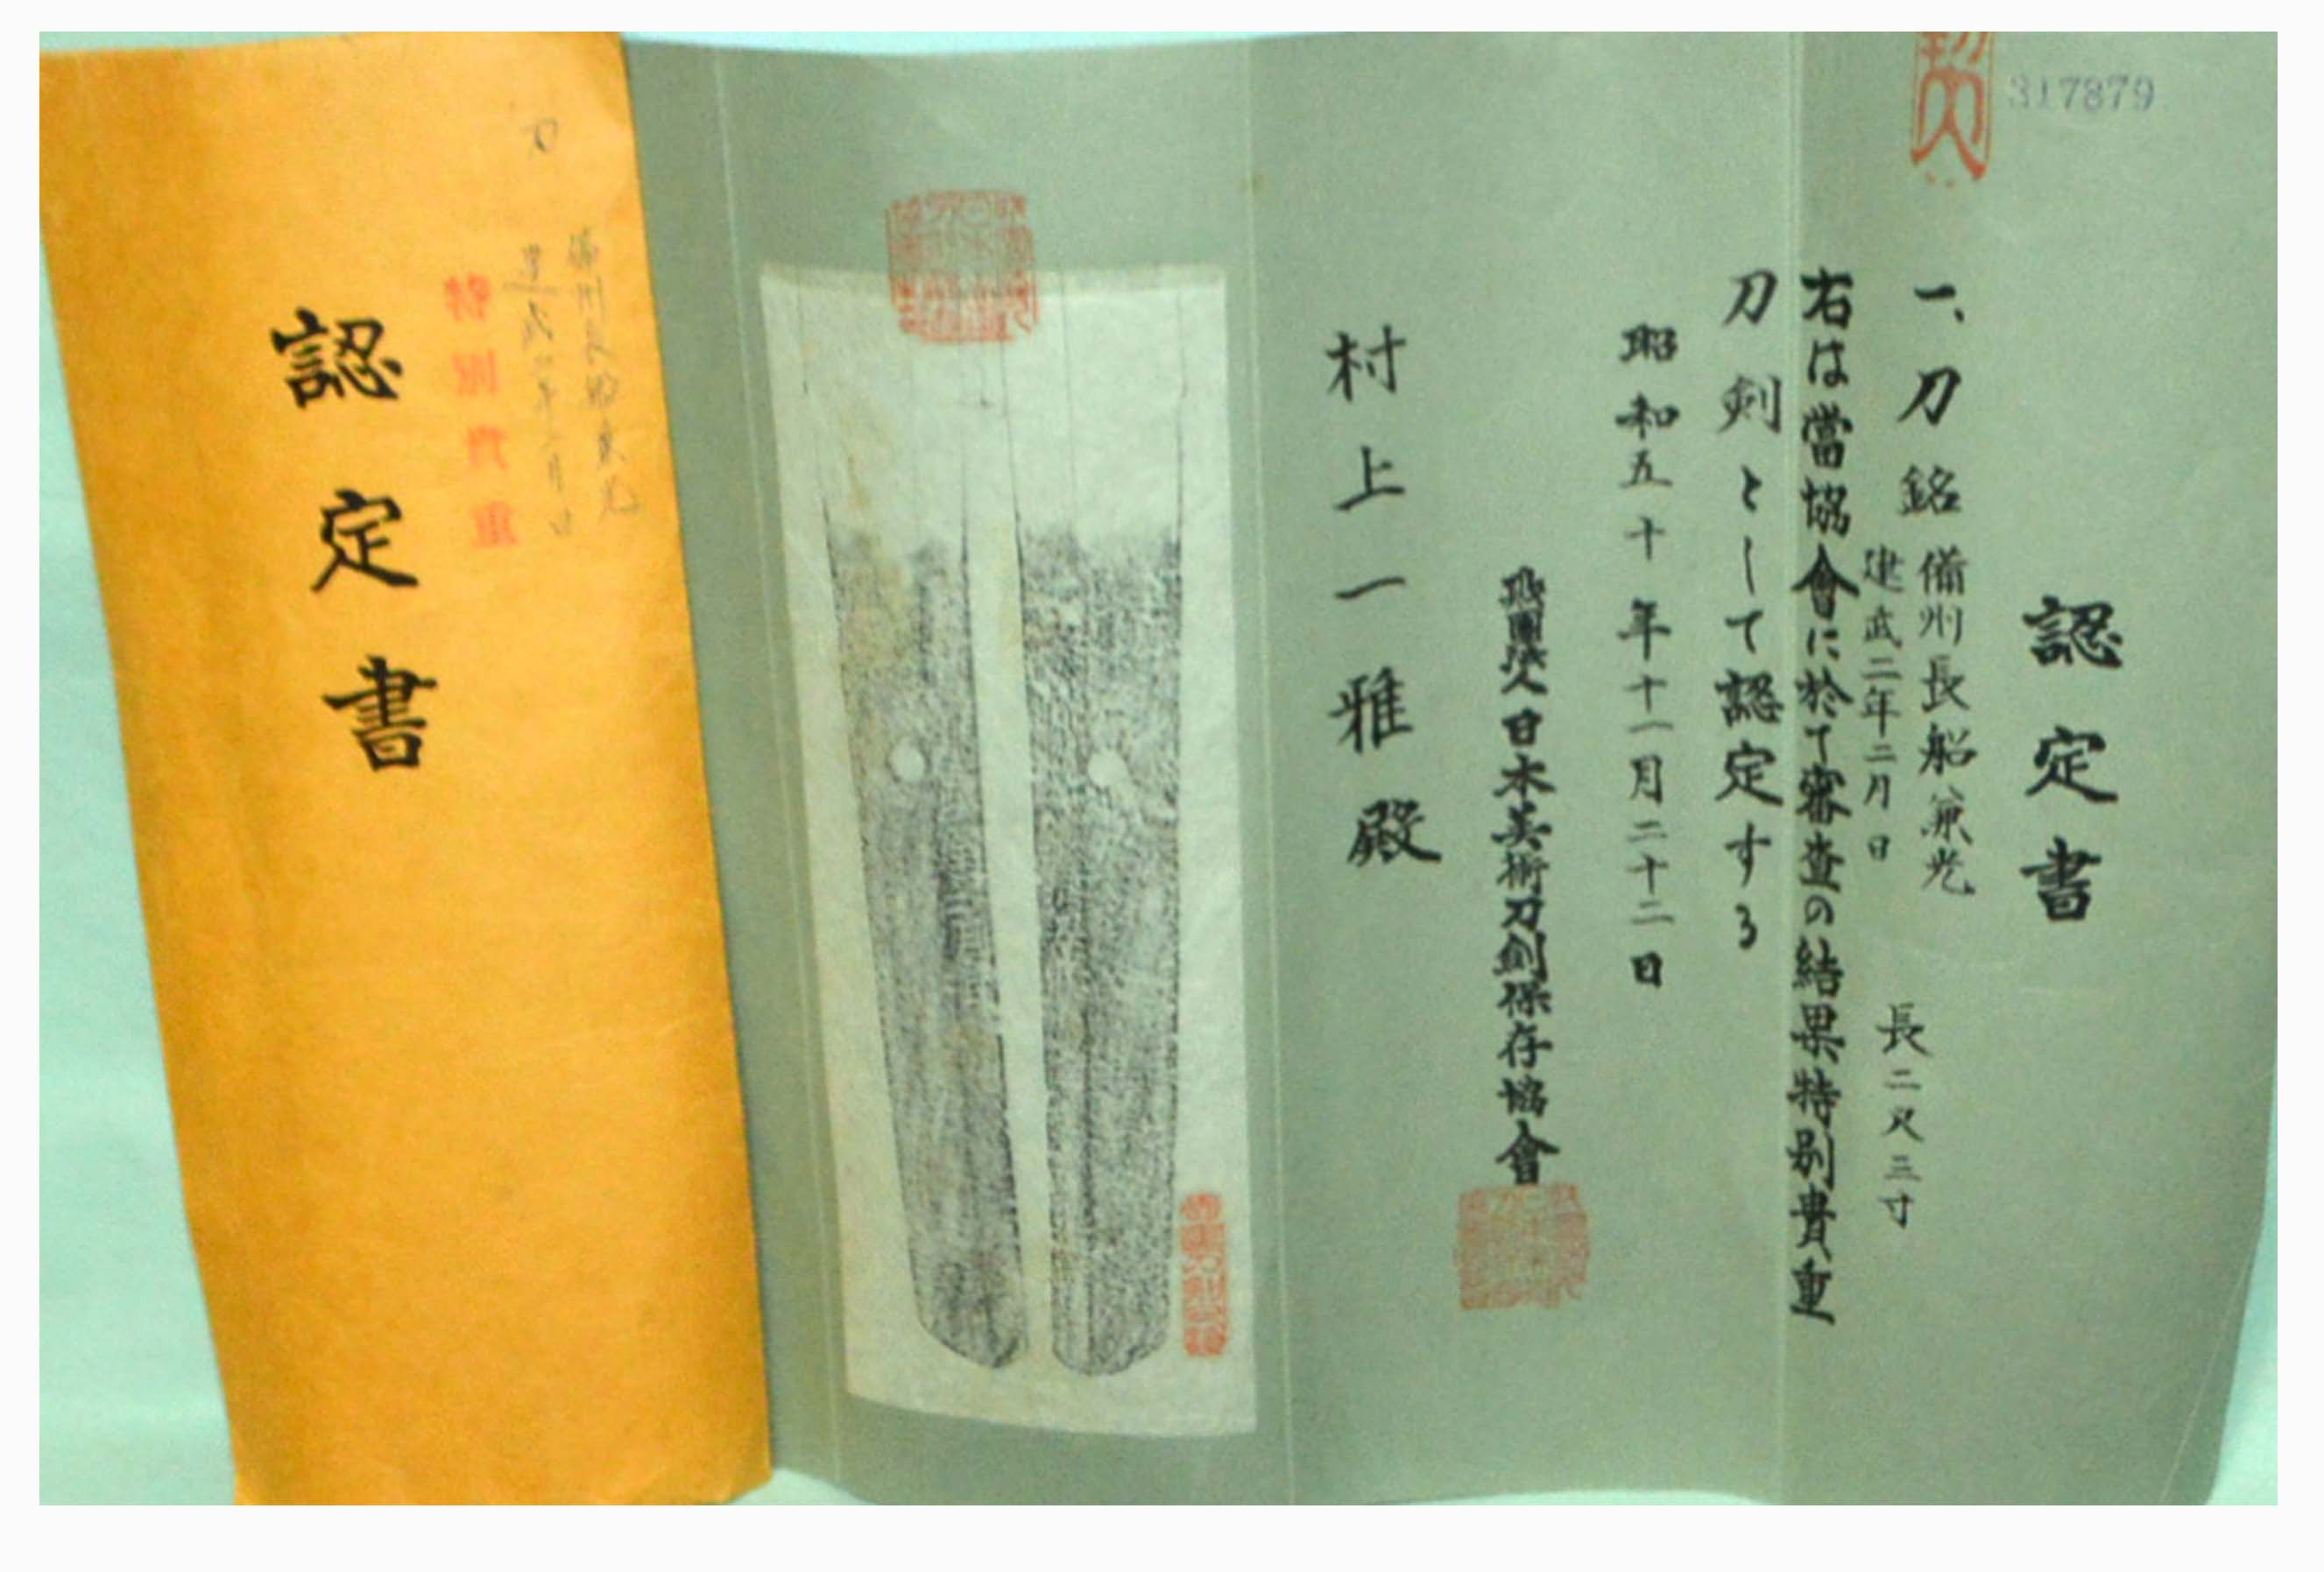 317879
認定書
一、刀 銘 備州長船兼光
建武二年二月日
長二尺三寸
右は當協會に於て審査の結果特別貴重
刀剣として認定する
昭和五十年十一月二十二日
財團法人日本美術刀劍保存協會
村上一雅殿
刀
備州長船兼光
建武二年二月日
特別貴重
認定書